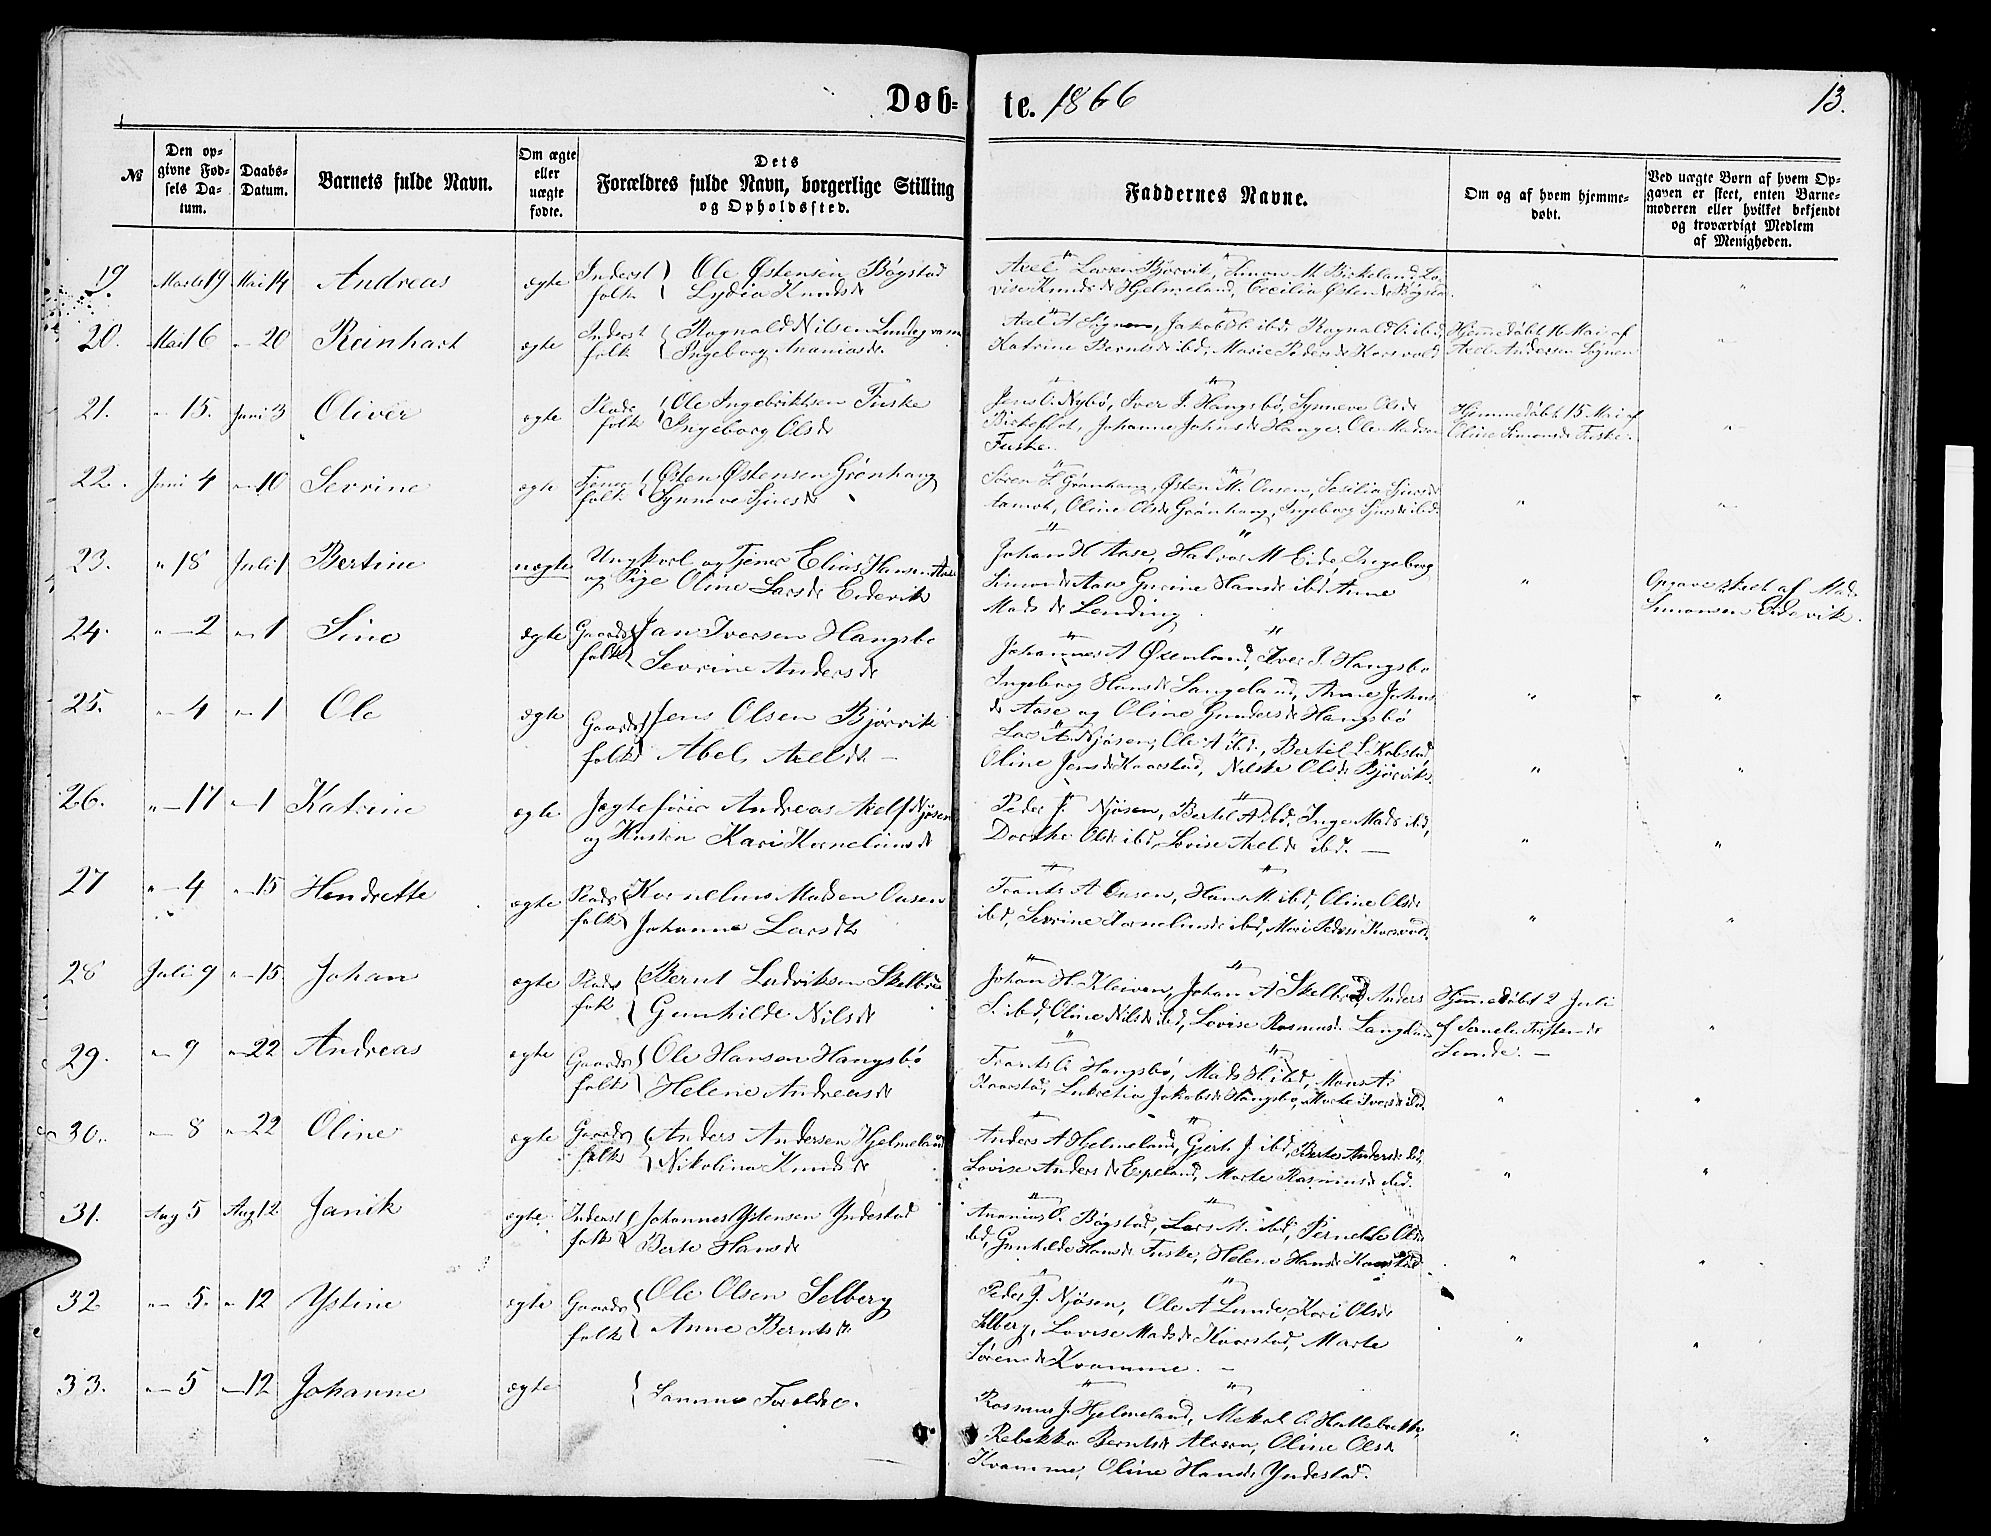 Døb=te. 1866
13.
№
Den op=
givne Fød=
sels Da=
tum.
Daabs=
Datum.
Barnets fulde Navn.
Om ægte
eller
uægte
fødte.
Dets
Forældres fulde Navn, borgerlige Stilling
og Opholdssted.
Faddernes Navne.
Om og af hvem hjemme=
døbt.
Ved uægte Børn af hvem Op=
gaven er skeet, enten Barne=
moderen eller hvilket bekjendt
og troværdigt Medlem
af Menigheden.
19 Marts 19 Mai 14 Andreas ægte Inderst folk Ole Østensen Bøgstad
Lydia Knudsdr
Axel Larsen Bjorvik, Simon M. Birkeland, Lo-
vise Knudsdr Hjelmeland, Cecilia Østensdr Bøgstad
20. Mai 6 " 20 Reinhart ægte Inderst folk Rognald Nilsen
Ingeborg Ananiasdr
Axel A Sygnen, Jakob ibd, Rognald O. ibd,
Katrine Berntsdr ibd, Marie Pedersdr
Hjemmedøbt 16 Mai af
Axel Andersen Sygnen
21. " 15. Juni 3 Oliver ægte Plads folk Ole Ingebriktsen Fuske
Ingeborg Olsdr
Jens O. Nybø, Iver J. Hangsbø, Synneve Olsdr
Birkeflot, Johanne Johnsdr Hange, Ole Madsen
Fuske.
Hjemmedøbt 15 Mai af
Oline Simonsdr Fuske.
22. Juni 4 " 10 Sevrine ægte Tjener folk Østen Østensen Grønhaug
Synneve Sjursdr
Søren H Grønhaug, Østen M. Ousen, Sesilia Sjursdr
Oline Olsdr Grønhaug, Ingeborg Sjursdr ibd.
23. " 18 Juli 1 Bertine uægte Ungkarl og Tjener Elias Hansen Aase
og Pige Oline Larsdr Eidevik
Johan H Aase, Halvor M Eide, Ingeborg
Simonsdr Aase Gurine Hansdr ibd Anne
Madsdr Lending.
Opgave skeet af Mad.
Simonsen Eidevik.
24. " 2 " 1 Sine ægte Gaards folk Jan Iversen Hangsbø
Sevrine Andersdr
Johannes A Øxenland, Iver J. Hangsbø
Ingeborg Hansdr Langeland, Anne Johns
dr Aase og Oline Gundersdr Hangsbø
25. " 4 " 1 Ole ægte Gaards folk Jens Olsen Bjørvik
Abel Axelsdr
Lars A. Njøsen, Ole A ibd., Bertel L. Kobstad,
Oline Jensdr Kaarstad, Nilske Olsdr Bjørvik.
26. " 17 " 1 Katrine ægte Jægtefører Andreas Axels Njøsen
og Hustru Kari Kornelius dr
Peder J. Njøsen, Bertel A ibd. Inge Mads ibd,
Dorthe Olsdr ibd, Lovise Axelsdr ibd.
27 " 4 " 15 Hendrette ægte Plads folk Kornelius Madsen Ousen
Johanne Larsdtr
Frants A Ousen, Hans M ibd, Oline Olsdr
ibd, Sevrine Korneliusdr ibd, Mari Pedersd
28 Juli 9 " 15 Johan ægte Plads folk Bernt Ludviksen
Gunhilde Nilsdr
Johan H. Kleiven, Johan A Anders
S. ibd, Oline Nilsdr ibd, Lovise Rasmusdr
Hjemmedøbt 2 Juli
29. " 9 " 22 Andreas ægte Gaards folk Ole Hansen Hangsbø
Helene Andreasdr
Frants O. Hangsbø, Mads H. ibd, Mons A.
Kaarstad, Lukretia Jakobsdr Hangsbø, Marte Iversdr ibd.
30. " 8 " 22 Oline ægte Gaards folk Anders Andersen Hjelmeland
Nikolina Knudsdr
Anders A Hjelmeland, Gjert J. ibd, Berte Andersdr ibd,
Lovise Andersdr Espeland, Marte Rasmusdr ibd.
31. Aug 5 Aug 12 Janik ægte Inderst folk Johannes Ystensen Yndestad
Berte Hansdr
Ananias O. Bøgstad, Lars M. ibd, Pernelle Olsdr
ibd, Gunhilde Hansdr Fuske, Helene Hansdr Kaarstad
32 " 5. " 12 Ystine ægte Gaards folk Ole Olsen Selberg
Anne Berntsdr
Peder J. Njøsen, Ole A Lunde, Kari Olsdr
Selberg, Lovise Madsdr Kaarstad, Marte
Sørensdr Kvamme.
33. " 5 " 12 Johanne ægte Samme Forældre.
Rasmus J. Hjelmeland, Mikal O. Hattebrække,
Rebekka Berntsdr Aksen, Oline Olsdr
Kvamme, Oline Hansdr Yndestad.